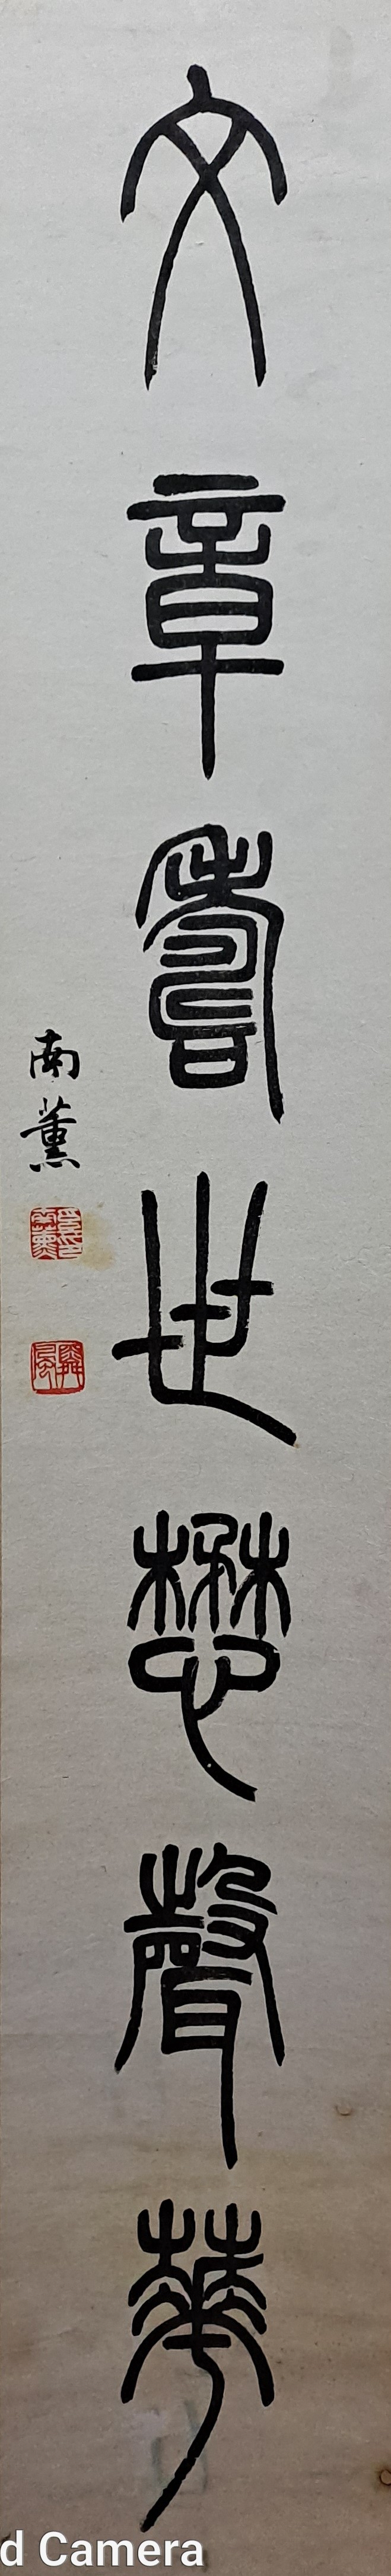 文章壽世懋聲華
南薰
d Camera